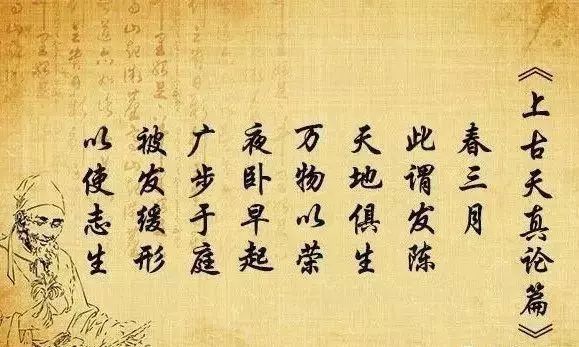 《上古天真论篇》
春三月
此谓发陈
天地俱生
万物以荣
夜卧早起
广步于庭
被发缓形
以使志生